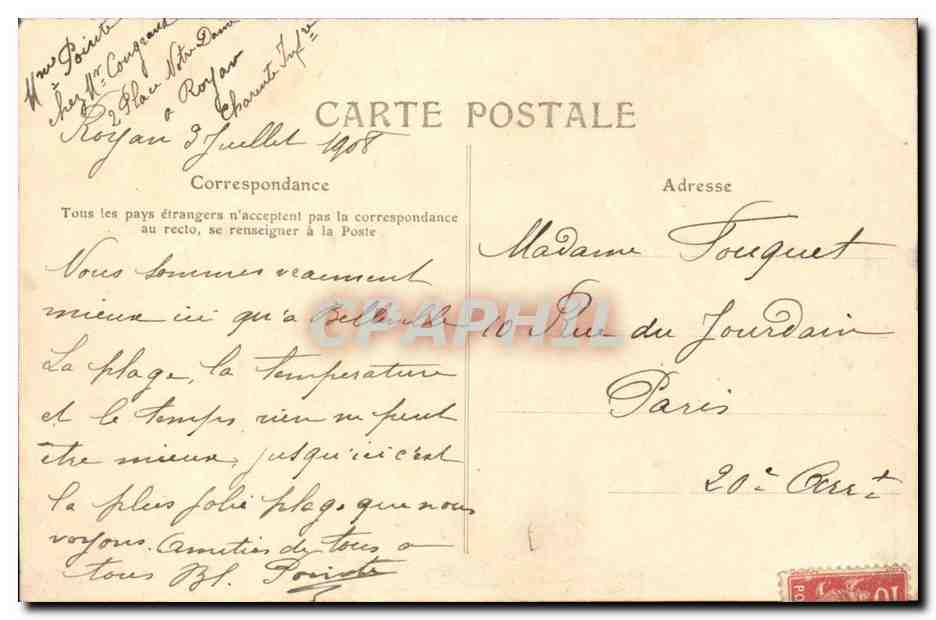 Mme Pointe
chez Mr. Cougrand
2 Place Notre Dame
a Royan
Charente Infre
CARTE POSTALE
Royan 3 Juillet 1908
Correspondance
Tous les pays étrangers n'acceptent pas la correspondance
au recto, se renseigner à la Poste
Nous sommes vraiment
mieux ici qu'a Belleville
La plage, la temperature
et le temps rien ne peut
être mieux, jusqu'ici c'est
la plus jolie plage que nous
voyons. Amitiés de tous a
tous Bl. Pointe
Adresse
Madame Fouquet
10 Rue du Jourdain
Paris
20e Arrt
CPAPHIL
10
PO